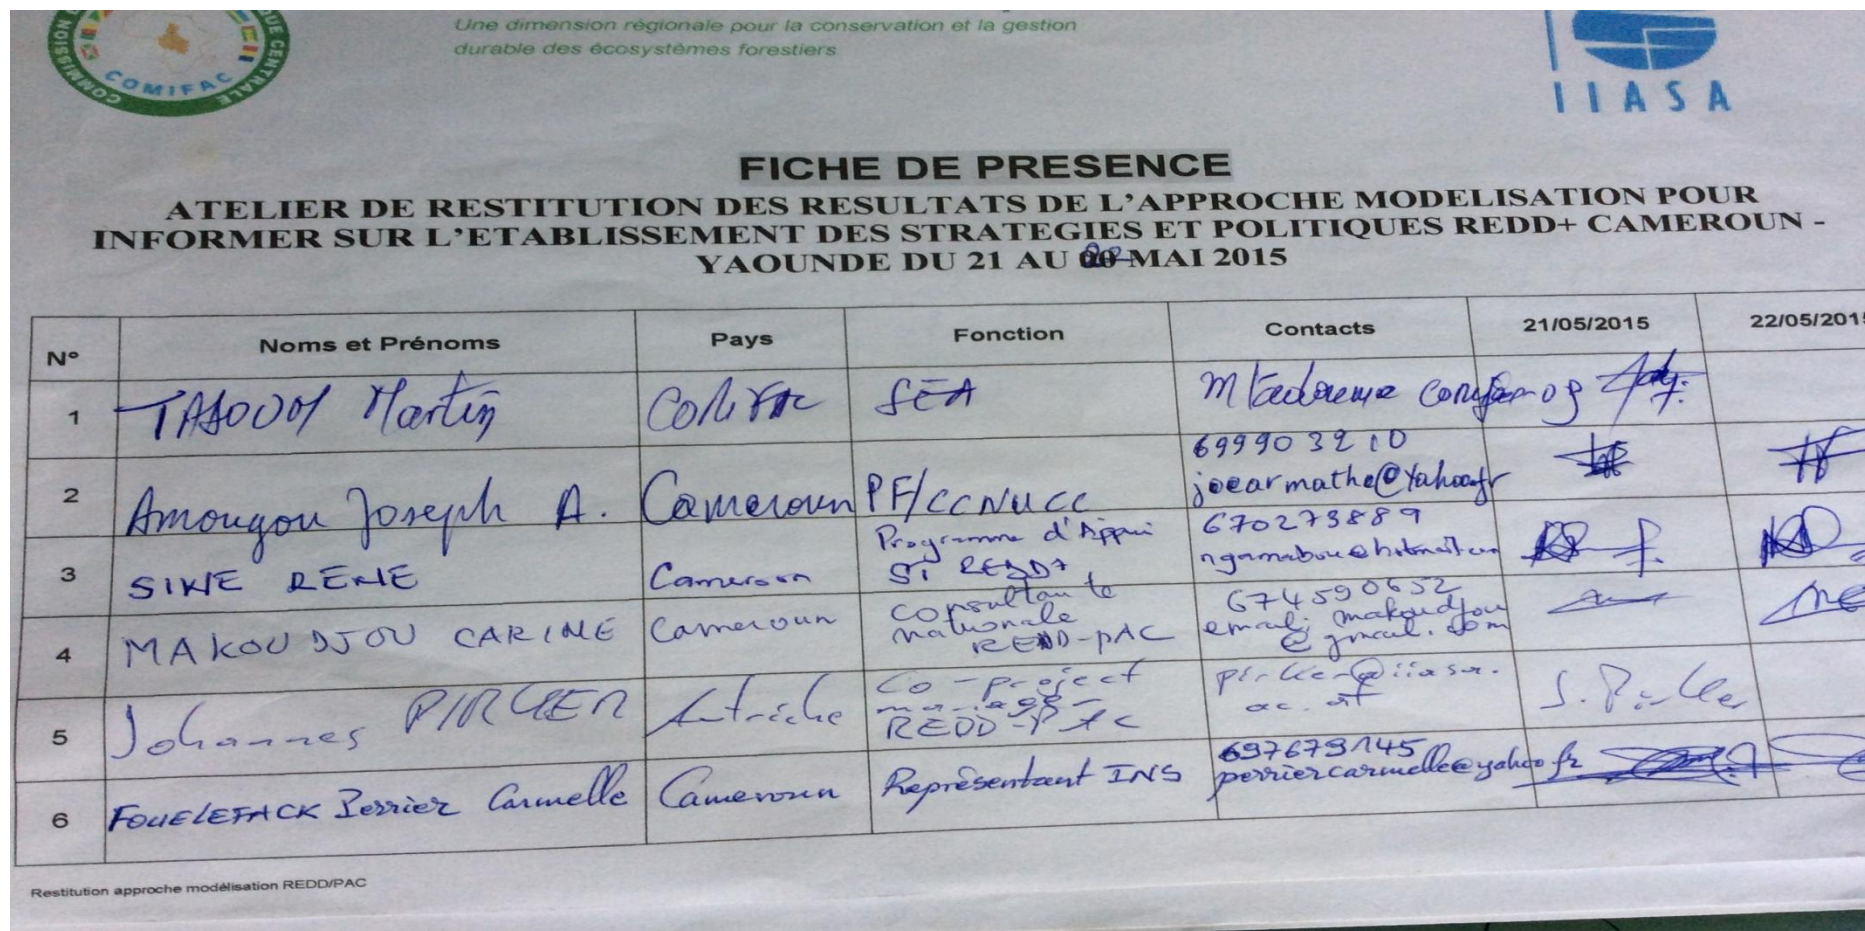 COMIFAC
Une dimension règionale pour la conservation et la gestion
durable des écosystèmes forestiers
IIASA
FICHE DE PRESENCE
ATELIER DE RESTITUTION DES RESULTATS DE L'APPROCHE MODELISATION POUR
INFORMER SUR L'ETABLISSEMENT DES STRATEGIES ET POLITIQUES REDD+ CAMEROUN -
YAOUNDE DU 21 AU 22 MAI 2015
N° Noms et Prénoms Pays Fonction Contacts 21/05/2015 22/05/2015
1 Martin SEA
2 Amougou Joseph A. Cameroun PF/CCNUCC 699903210
joearmathe@Yahoo.fr
3 SIKE RENE Cameroun Programme d'Appui
ST REDD+
670273889
4 MAKOUDJOU CARINE Cameroun Consultante
nationale
REDD-PAC
674590652
email: makoudjou
@gmail.com
5 Johannes PIRKER Autriche Co-project
manager
REDD-PAC
pirker@iiasa.
ac.at
J. Pirker
6 FOUELEFACK Perrier Carmelle Cameroun Représentant INS 697679145
perriercarmelle@yahoo.fr
Restitution approche modélisation REDD/PAC